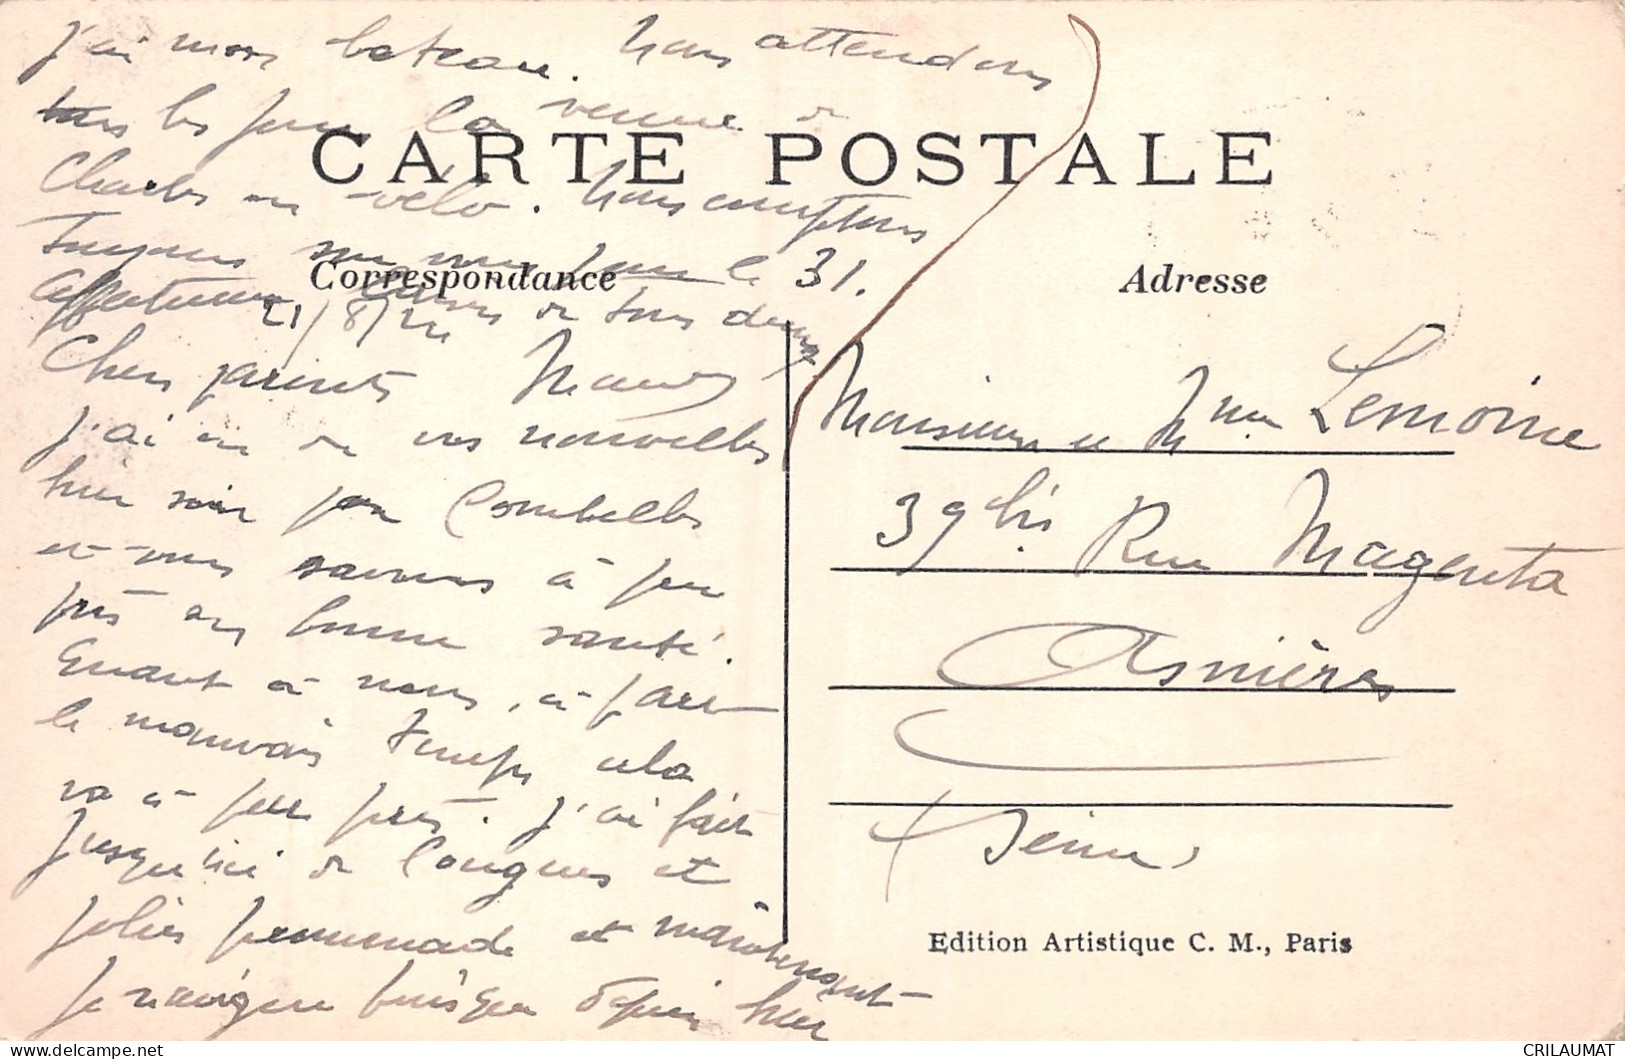 j'ai mon bateau. Nous attendons
tous les jours la venue de
Charles en vélo. Nous comptons
toujours sur vous pour le 31.
Affectueux baisers de tous deux
CARTE POSTALE
Correspondance
Adresse
21/8/24
Chers parents
J'ai eu de vos nouvelles
hier soir par Combelles
et vous savons à peu
près en bonne santé.
Quant à nous, à part
le mauvais temps cela
va à peu près. J'ai fait
jusqu'ici de longues et
jolies promenades et maintenant
je navigue puisque depuis hier
Monsieur et Mme Lemoine
39 bis Rue Magenta
Asnières
Seine
Edition Artistique C. M., Paris
CRILAUMAT